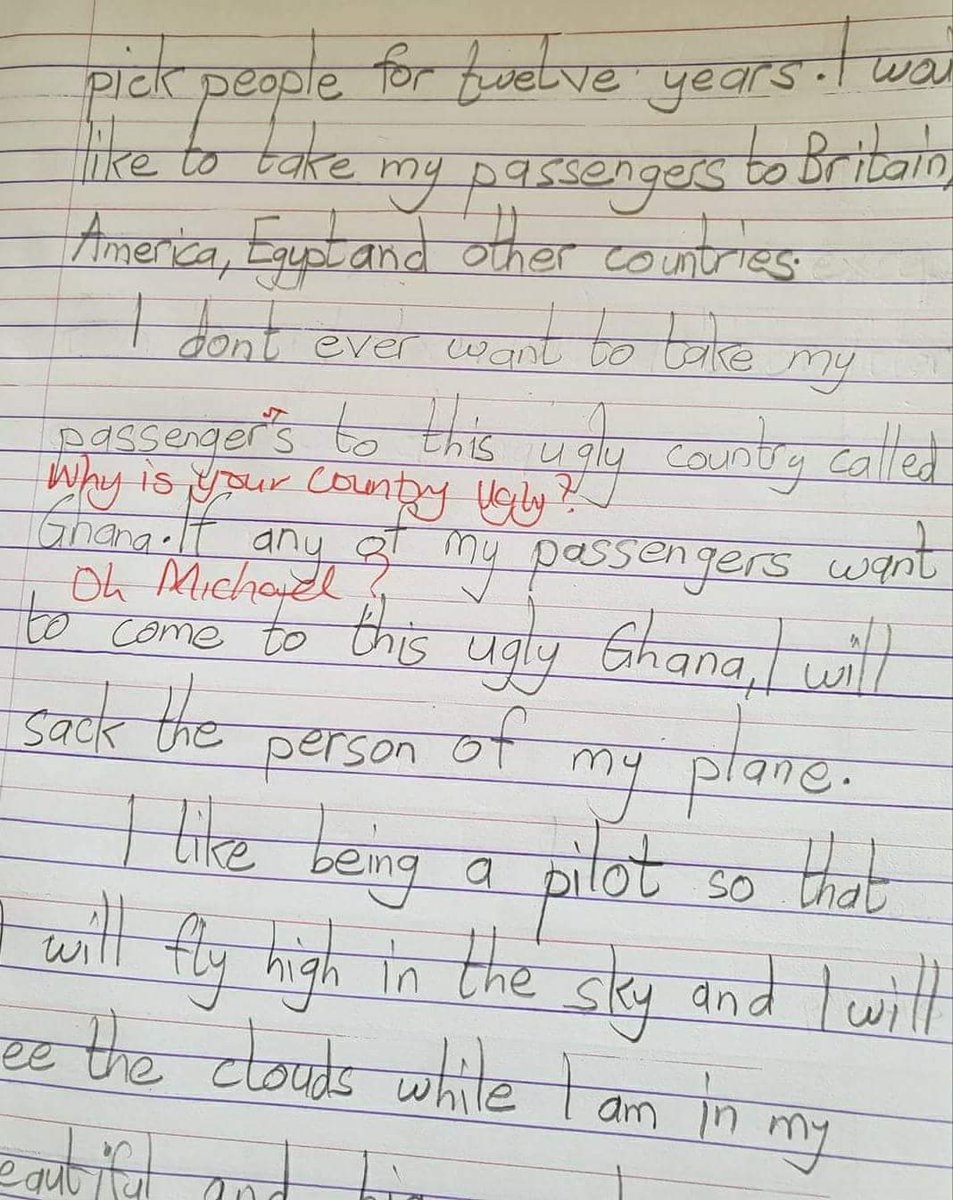 pick people for twelve years. I wou
like to take my passengers to Britain,
America, Egypt and other countries.
I dont ever want to take my
passenger's to this ugly country called
Why is your country ugly?
Ghana. If any of my passengers want
Oh Michael?
to come to this ugly Ghana, I will
sack the person of my plane.
I like being a pilot so that
I will fly high in the sky and I will
ee the clouds while I am in my
eautiful and